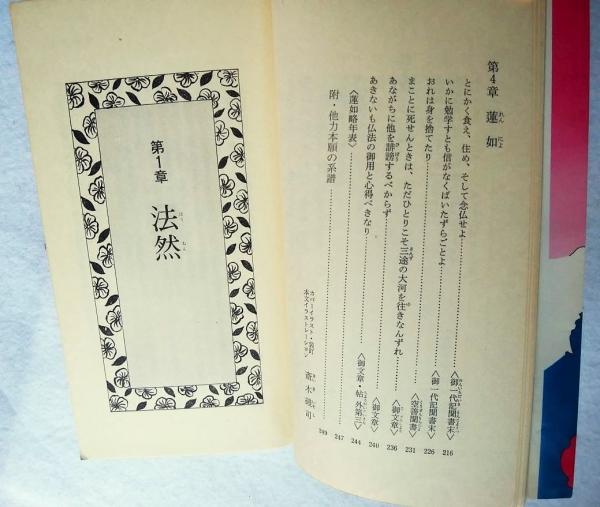 第4章 蓮如
れんにょ
とにかく食え、住め、そして念仏せよ……〈御一代記聞書末〉 216
いかに勉学すとも信がなくばいたずらごとよ……〈御一代記聞書末〉 226
おれは身を捨てたり……〈空善聞書〉 231
まことに死せんときは、ただひとりこそ三途の大河を往きなんずれ……〈御文章〉 236
あながちに他を誹謗するべからず……〈御文章〉 240
あきないも仏法の御用と心得べきなり……〈御文章・帖外第三〉 244
〈蓮如略年表〉…… 247
附・他力本願の系譜…… 249
カバーイラスト・装訂
本文イラストレーション
斎木磯司
第1章 法然
ほうねん